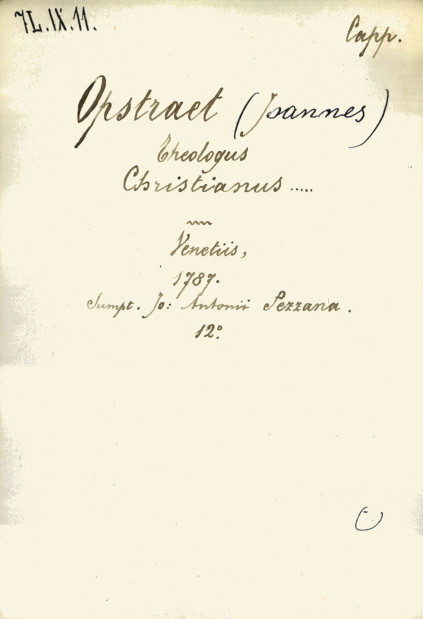 7L.IX.11.
Capp.
Opstraet (Joannes)
Theologus
Christianus .....
Venetiis,
1787.
Sumpt. Jo: Antonii Pezzana.
12º.